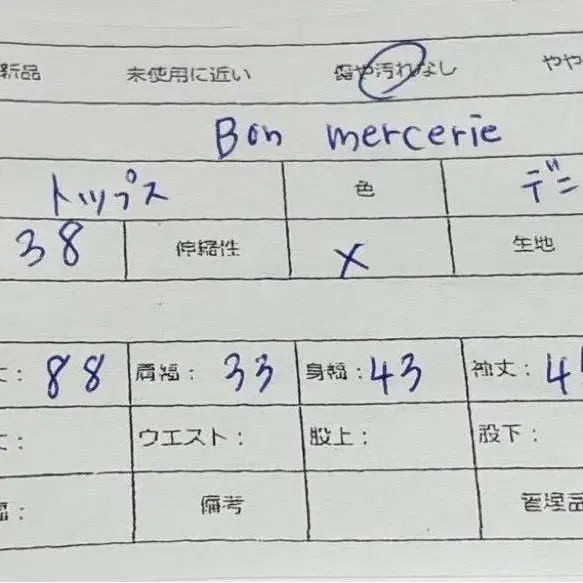 新品 未使用に近い 傷や汚れなし やや
Bon mercerie
トップス 色 デニ
38 伸縮性 × 生地
丈: 88 肩幅: 33 身幅: 43 袖丈: 4
丈: ウエスト: 股上: 股下:
幅: 備考 管理品